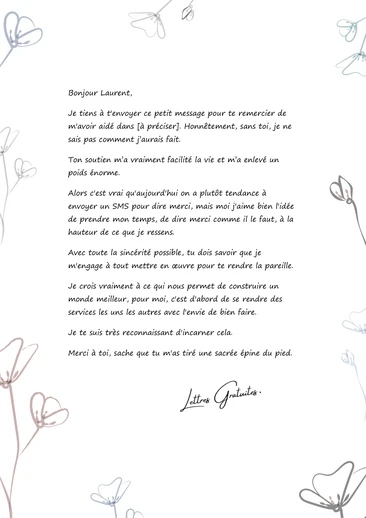 Bonjour Laurent,
Je tiens à t'envoyer ce petit message pour te remercier de
m'avoir aidé dans [à préciser]. Honnêtement, sans toi, je ne
sais pas comment j'aurais fait.
Ton soutien m'a vraiment facilité la vie et m'a enlevé un
poids énorme.
Alors c'est vrai qu'aujourd'hui on a plutôt tendance à
envoyer un SMS pour dire merci, mais moi j'aime bien l'idée
de prendre mon temps, de dire merci comme il le faut, à la
hauteur de ce que je ressens.
Avec toute la sincérité possible, tu dois savoir que je
m'engage à tout mettre en œuvre pour te rendre la pareille.
Je crois vraiment à ce qui nous permet de construire un
monde meilleur, pour moi, c'est d'abord de se rendre des
services les uns les autres avec l'envie de bien faire.
Je te suis très reconnaissant d'incarner cela.
Merci à toi, sache que tu m'as tiré une sacrée épine du pied.
Lettres Gratuites.